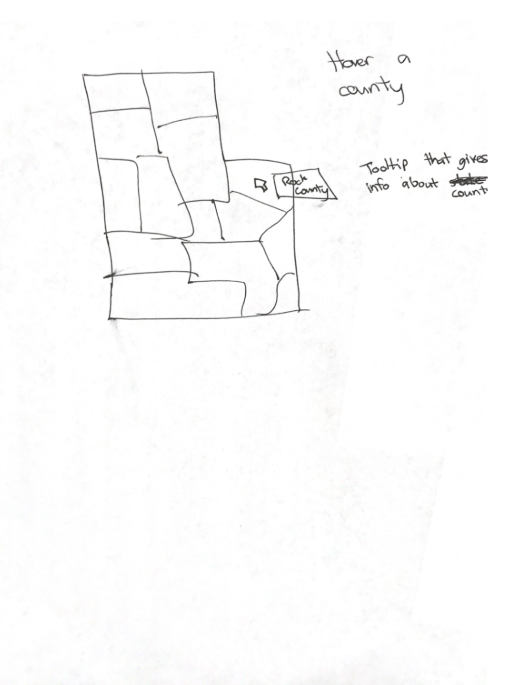 Hover a
county
Rock
County
Tooltip that gives
info about state
count